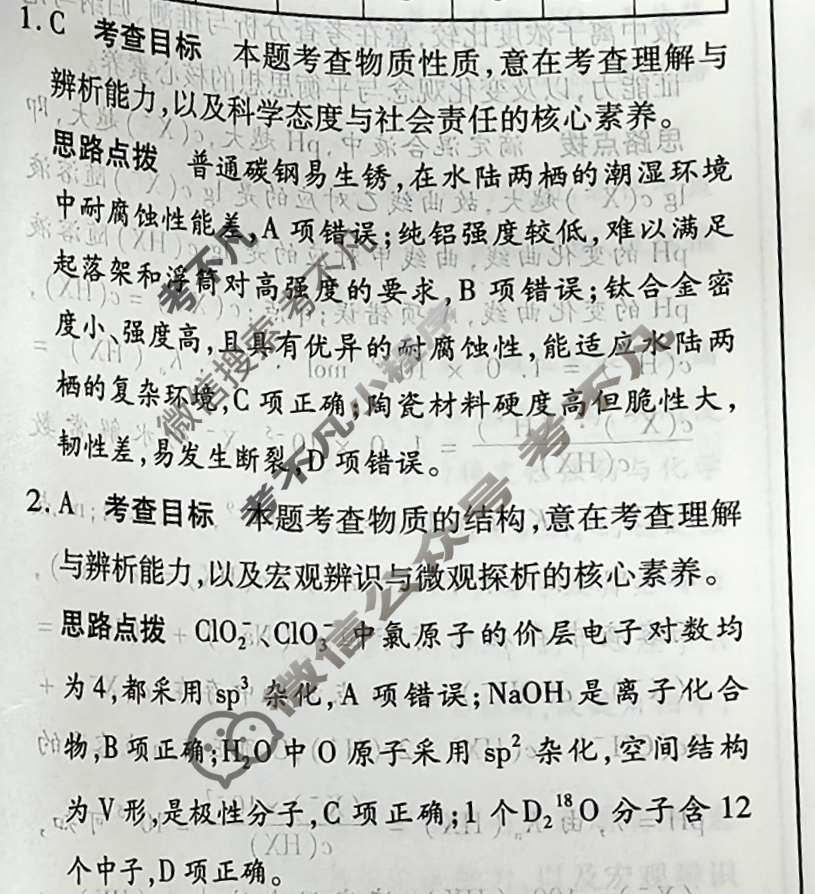 1. C 考查目标 本题考查物质性质,意在考查理解与
辨析能力,以及科学态度与社会责任的核心素养。
思路点拨 普通碳钢易生锈,在水陆两栖的潮湿环境
中耐腐蚀性能差,A 项错误;纯铝强度较低,难以满足
起落架和浮筒对高强度的要求,B 项错误;钛合金密
度小、强度高,且具有优异的耐腐蚀性,能适应水陆两
栖的复杂环境,C 项正确;陶瓷材料硬度高但脆性大,
韧性差,易发生断裂,D 项错误。
2. A 考查目标 本题考查物质的结构,意在考查理解
与辨析能力,以及宏观辨识与微观探析的核心素养。
思路点拨 ClO₂⁻、ClO₃⁻ 中氯原子的价层电子对数均
为 4,都采用 sp³ 杂化,A 项错误;NaOH 是离子化合
物,B 项正确;H₂O 中 O 原子采用 sp² 杂化,空间结构
为 V 形,是极性分子,C 项正确;1 个 D₂¹⁸O 分子含 12
个中子,D 项正确。
考不凡
微信搜索考不凡
考不凡小程序
微信公众号 考不凡